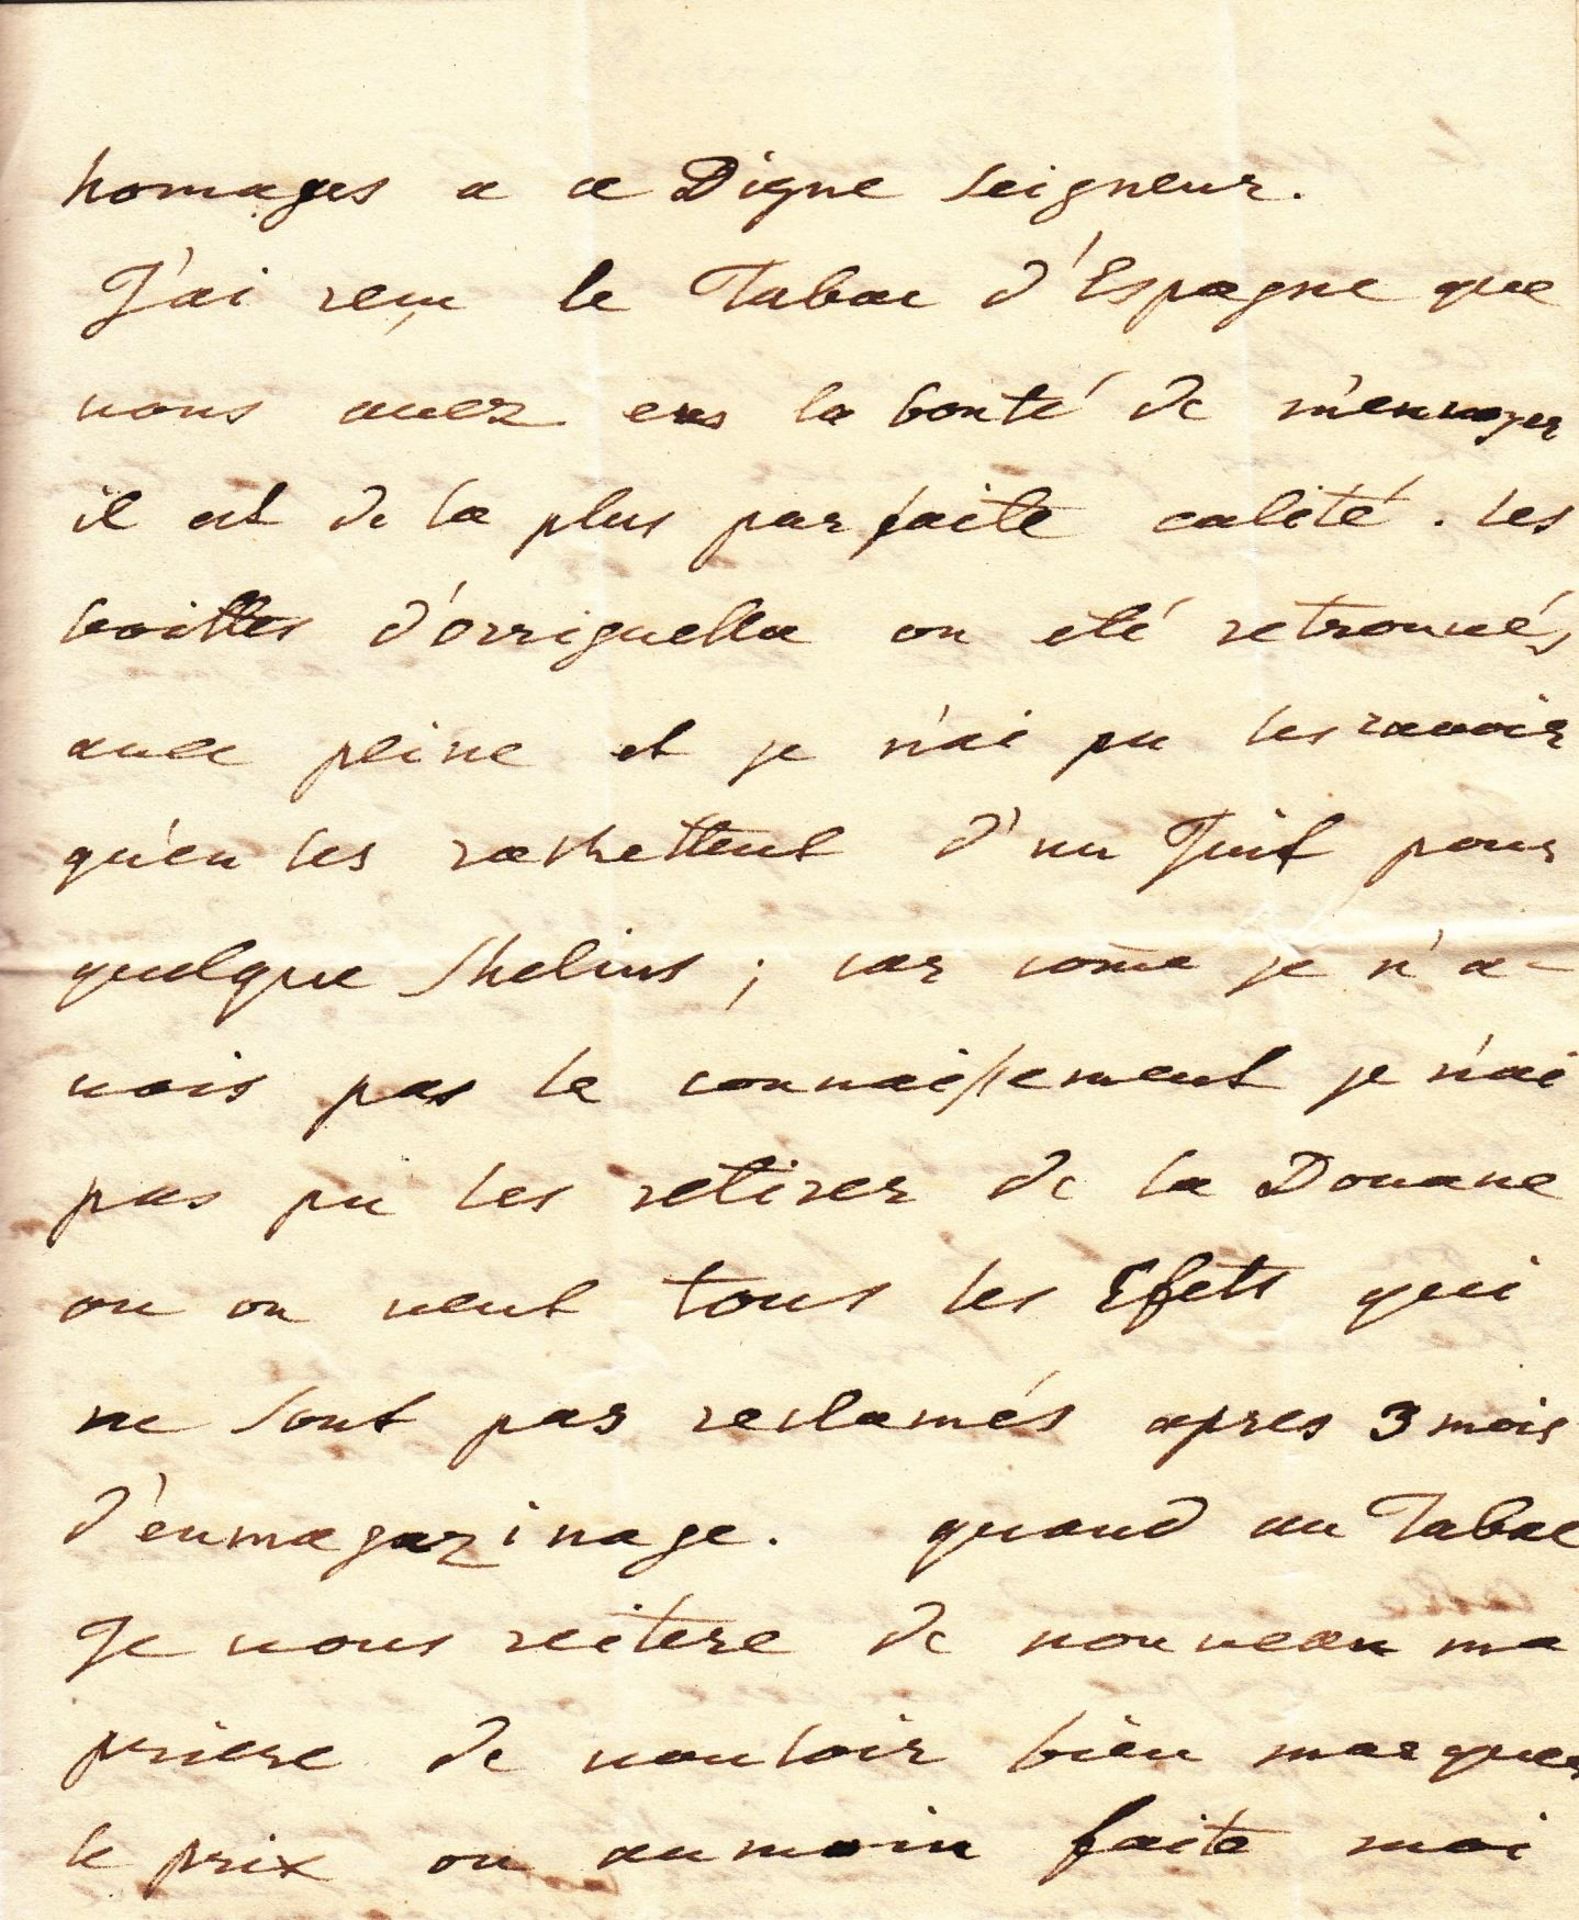 homages a ce Digne Seigneur.
J'ai reçu le Tabac d'Espagne que
vous avez eus la bonté de m'envoyer
il est de la plus parfaite calité. les
boittes d'orriguella on eté retrouvés
avec peine et je n'ai pu les ravoir
qu'en les rachettent d'un Juif pour
quelque Shelins ; car come je n'a-
vois pas le connaissement je n'ai
pas pu les retirer de la Douane
ou on vent tous les Efets qui
ne sont pas reclamés apres 3 mois
d'enmagazinage. quand au Tabac
Je vous reitere de nouveau ma
priere de vouloir bien marquer
le prix ou au moin faite moi